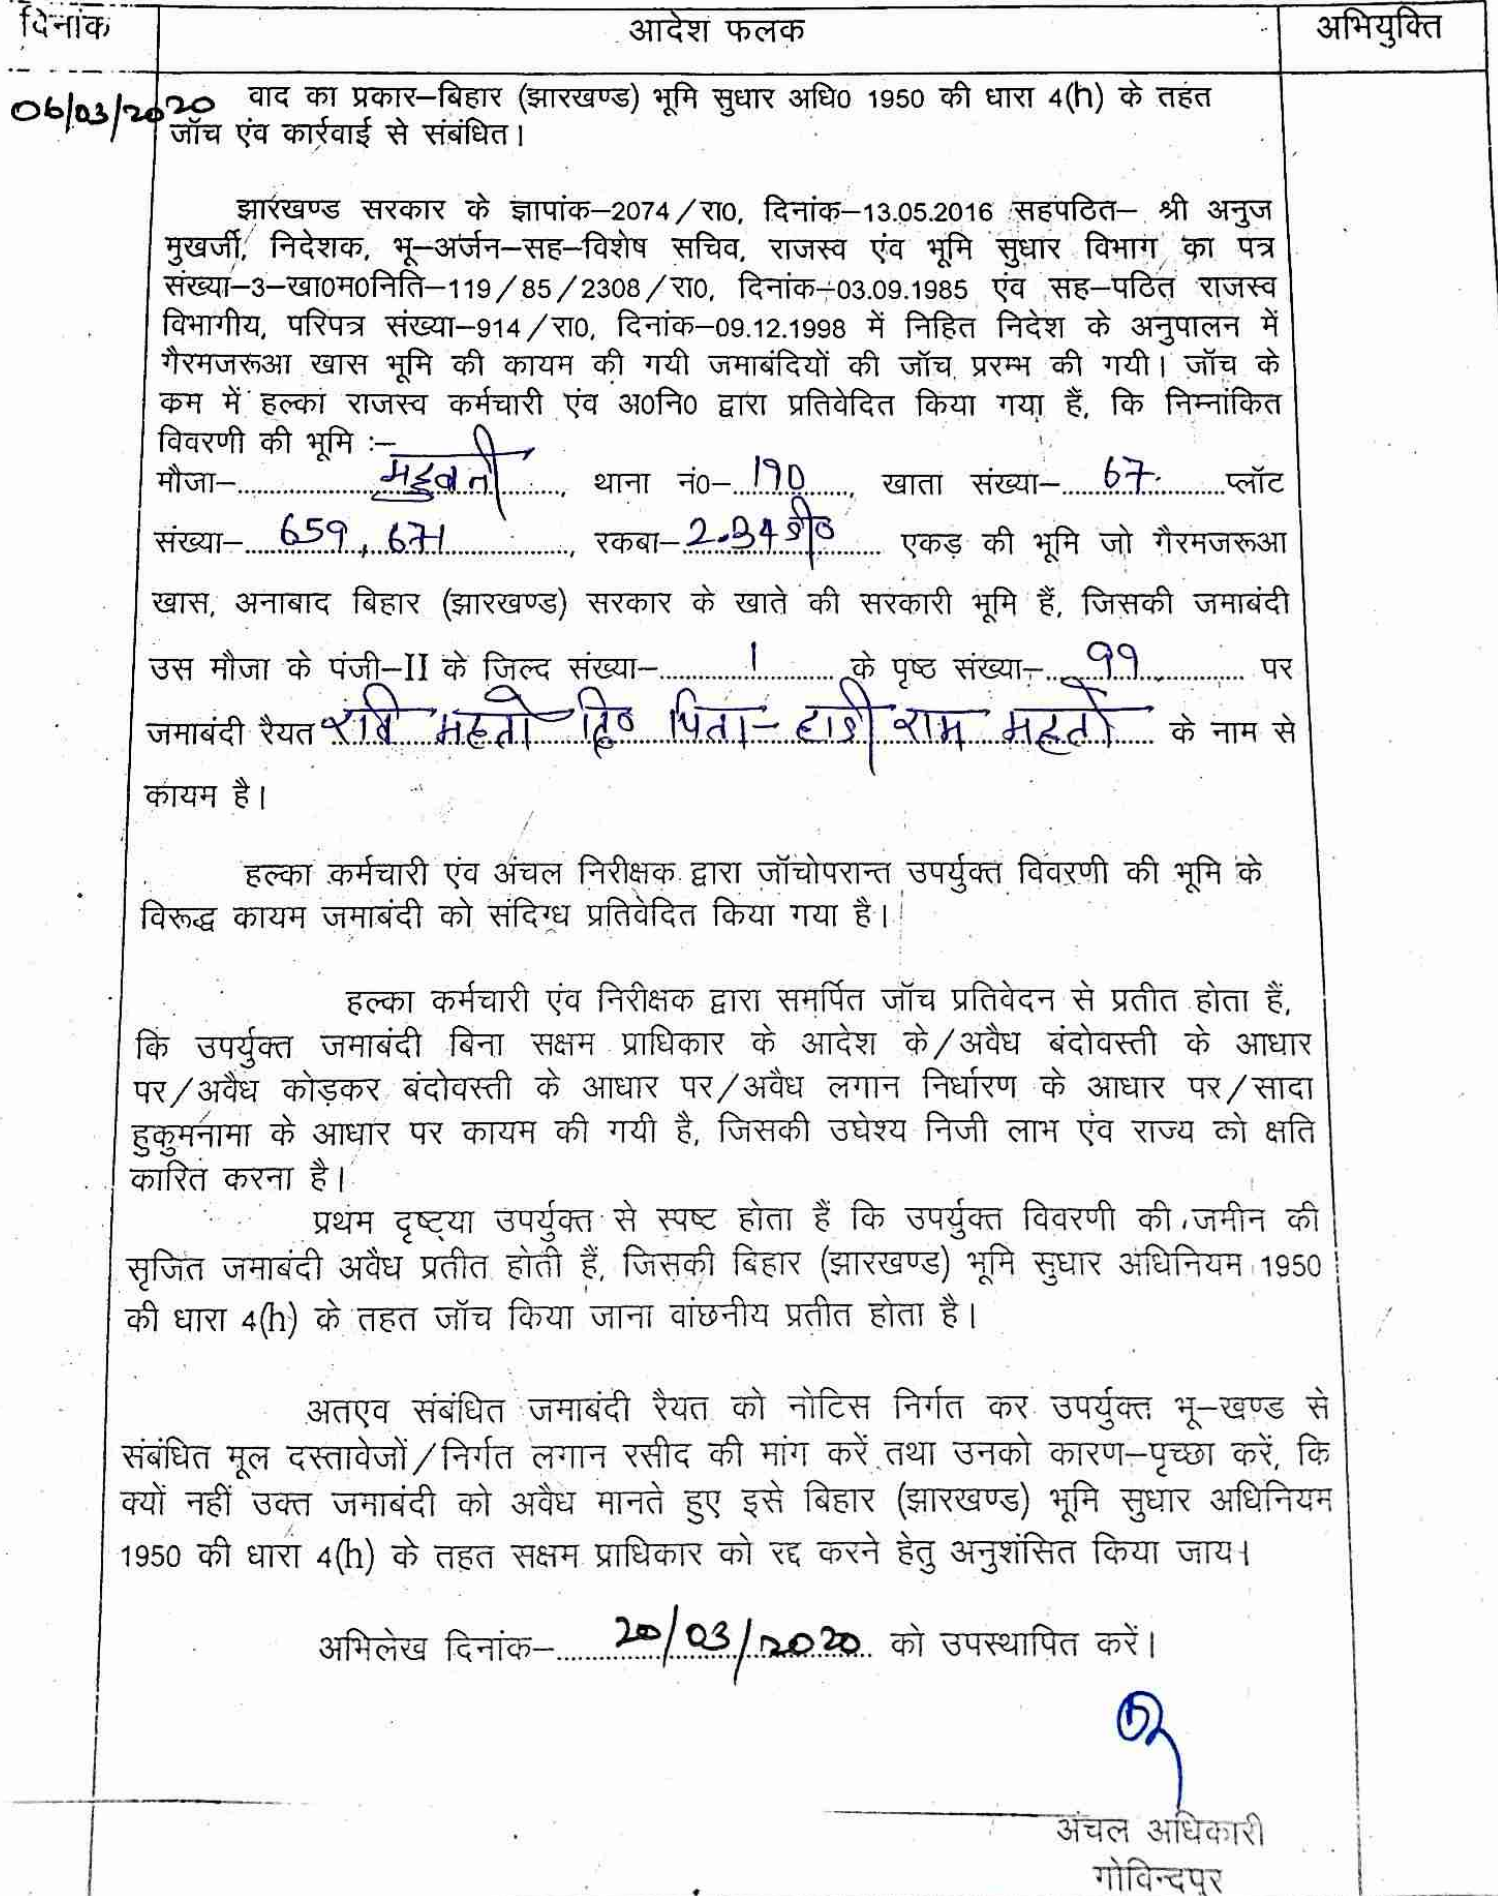 दिनांक आदेश फलक अभियुक्ति
06/03/2020 वाद का प्रकार–बिहार (झारखण्ड) भूमि सुधार अधि0 1950 की धारा 4(h) के तहत
जॉच एंव कार्रवाई से संबंधित।
झारखण्ड सरकार के ज्ञापांक–2074/रा0, दिनांक–13.05.2016 सहपठित– श्री अनुज
मुखर्जी, निदेशक, भू–अर्जन–सह–विशेष सचिव, राजस्व एंव भूमि सुधार विभाग का पत्र
संख्या–3–खा0म0निति–119/85/2308/रा0, दिनांक–03.09.1985 एंव सह–पठित राजस्व
विभागीय, परिपत्र संख्या–914/रा0, दिनांक–09.12.1998 में निहित निदेश के अनुपालन में
गैरमजरूआ खास भूमि की कायम की गयी जमाबंदियों की जॉच प्ररम्भ की गयी। जॉच के
कम में हल्का राजस्व कर्मचारी एंव अ0नि0 द्वारा प्रतिवेदित किया गया हैं, कि निम्नांकित
विवरणी की भूमि :–
मौजा– थाना नं0– 190, खाता संख्या– 67 प्लॉट
संख्या– 659, 671, रकबा– 2.34 डी0 एकड़ की भूमि जो गैरमजरूआ
खास, अनाबाद बिहार (झारखण्ड) सरकार के खाते की सरकारी भूमि हैं, जिसकी जमाबंदी
उस मौजा के पंजी–II के जिल्द संख्या– 1 के पृष्ठ संख्या– 99 पर
जमाबंदी रैयत महतो पिता– राम महतो के नाम से
कायम है।
हल्का कर्मचारी एंव अंचल निरीक्षक द्वारा जॉचोपरान्त उपर्युक्त विवरणी की भूमि के
विरूद्ध कायम जमाबंदी को संदिग्ध प्रतिवेदित किया गया है।
हल्का कर्मचारी एंव निरीक्षक द्वारा समर्पित जॉच प्रतिवेदन से प्रतीत होता हैं,
कि उपर्युक्त जमाबंदी बिना सक्षम प्राधिकार के आदेश के/अवैध बंदोवस्ती के आधार
पर/अवैध कोड़कर बंदोवस्ती के आधार पर/अवैध लगान निर्धारण के आधार पर/सादा
हुकुमनामा के आधार पर कायम की गयी है, जिसकी उघेश्य निजी लाभ एंव राज्य को क्षति
कारित करना है।
प्रथम दृष्ट्या उपर्युक्त से स्पष्ट होता हैं कि उपर्युक्त विवरणी की जमीन की
सृजित जमाबंदी अवैध प्रतीत होती हैं, जिसकी बिहार (झारखण्ड) भूमि सुधार अधिनियम 1950
की धारा 4(h) के तहत जॉच किया जाना वांछनीय प्रतीत होता है।
अतएव संबंधित जमाबंदी रैयत को नोटिस निर्गत कर उपर्युक्त भू–खण्ड से
संबंधित मूल दस्तावेजों/निर्गत लगान रसीद की मांग करें तथा उनको कारण–पृच्छा करें, कि
क्यों नहीं उक्त जमाबंदी को अवैध मानते हुए इसे बिहार (झारखण्ड) भूमि सुधार अधिनियम
1950 की धारा 4(h) के तहत सक्षम प्राधिकार को रद्द करने हेतु अनुशंसित किया जाय।
अभिलेख दिनांक– 20/03/2020 को उपस्थापित करें।
अंचल अधिकारी
गोविन्दपुर